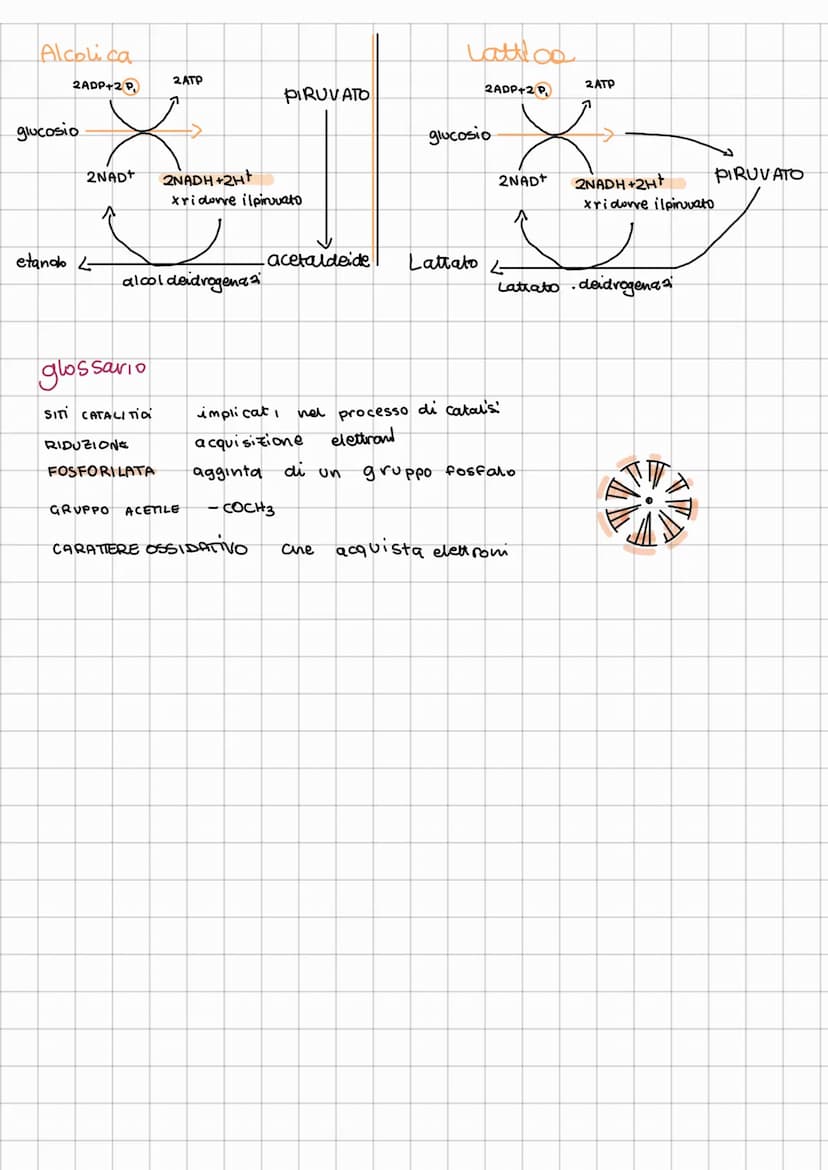 Alcolica
2ADP+2Pi
2ATP
PIRUVATO
glucosio
2NAD+
2NADH+2H+
x ridurre il piruvato
etanolo
acetaldeide
alcol deidrogenasi
Lattica
2ADP+2Pi
2ATP
glucosio
2NAD+
2NADH+2H+
PIRUVATO
x ridurre il piruvato
Lattato
Lattato . deidrogenasi
glossario
SITI CATALITICI implicati nel processo di catalisi
RIDUZIONE acquisizione elettroni
FOSFORILATA agginta di un gruppo fosfato
GRUPPO ACETILE -COCH3
CARATTERE OSSIDATIVO che acquista elettroni